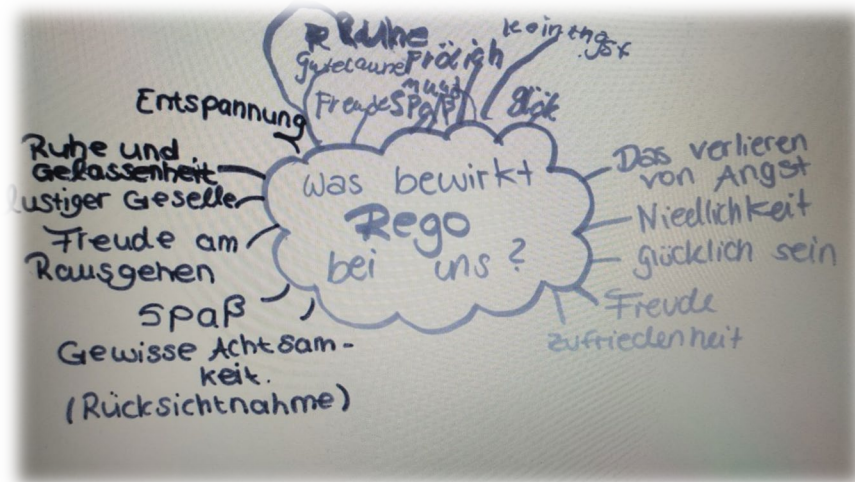 Ruhe
gute Laune
Frölich
Freude
Spaß
Entspannung
Ruhe und
Gelassenheit
lustiger Geselle
Freude am
Rausgehen
Spaß
Gewisse Achtsam-
keit.
(Rücksichtnahme)
was bewirkt
Rego
bei uns?
Das verlieren
von Angst
Niedlichkeit
glücklich sein
Freude
zufriedenheit